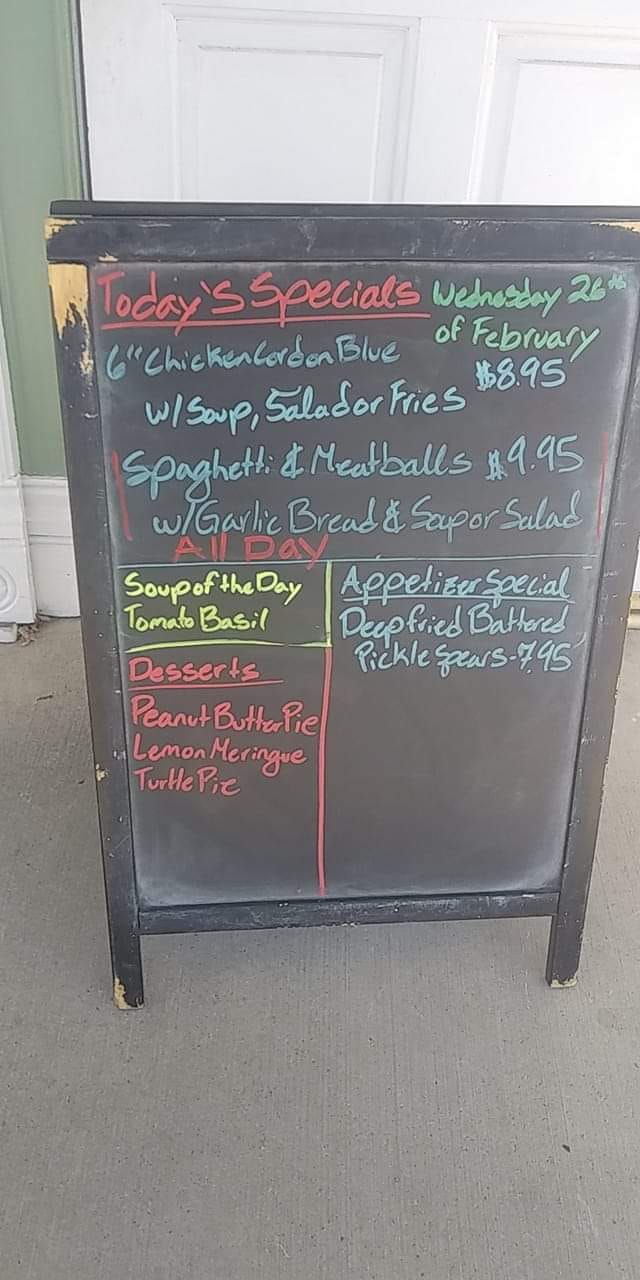 Today's Specials Wednesday 26th
of February
6" Chicken Cordon Blue
$8.95
w/Soup, Salad or Fries
Spaghetti & Meatballs $9.95
w/Garlic Bread & Soup or Salad
All Day
Soup of the Day
Tomato Basil
Appetizer Special
Deep fried Battered
Pickle Spears-7.95
Desserts
Peanut Butter Pie
Lemon Meringue
Turtle Pie